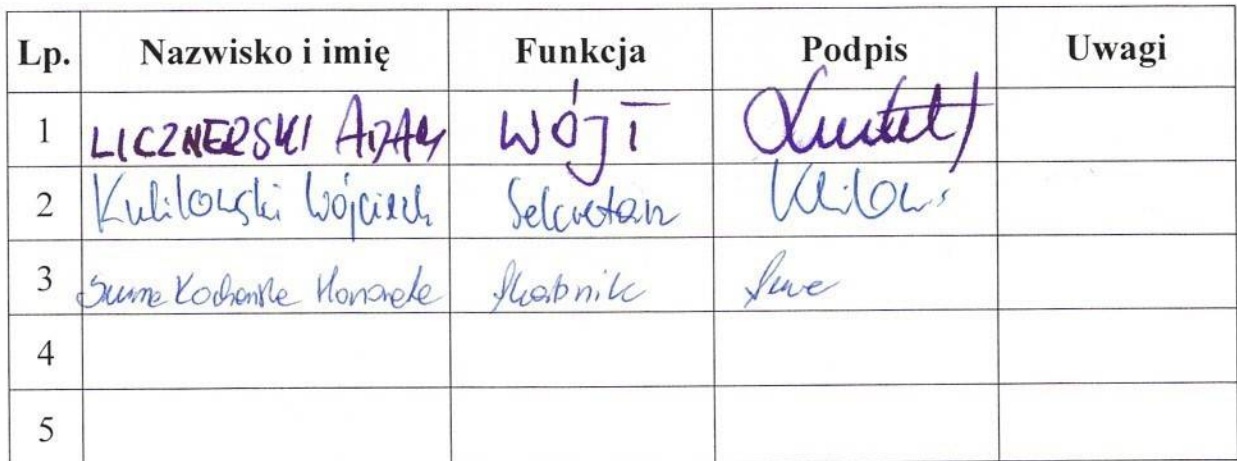 Lp. Nazwisko i imię Funkcja Podpis Uwagi
1 LICZNERSKI ADAM WÓJT
2 Kulikowski Wójciech Sekretarz
3 Honorata Skarbnik
4
5